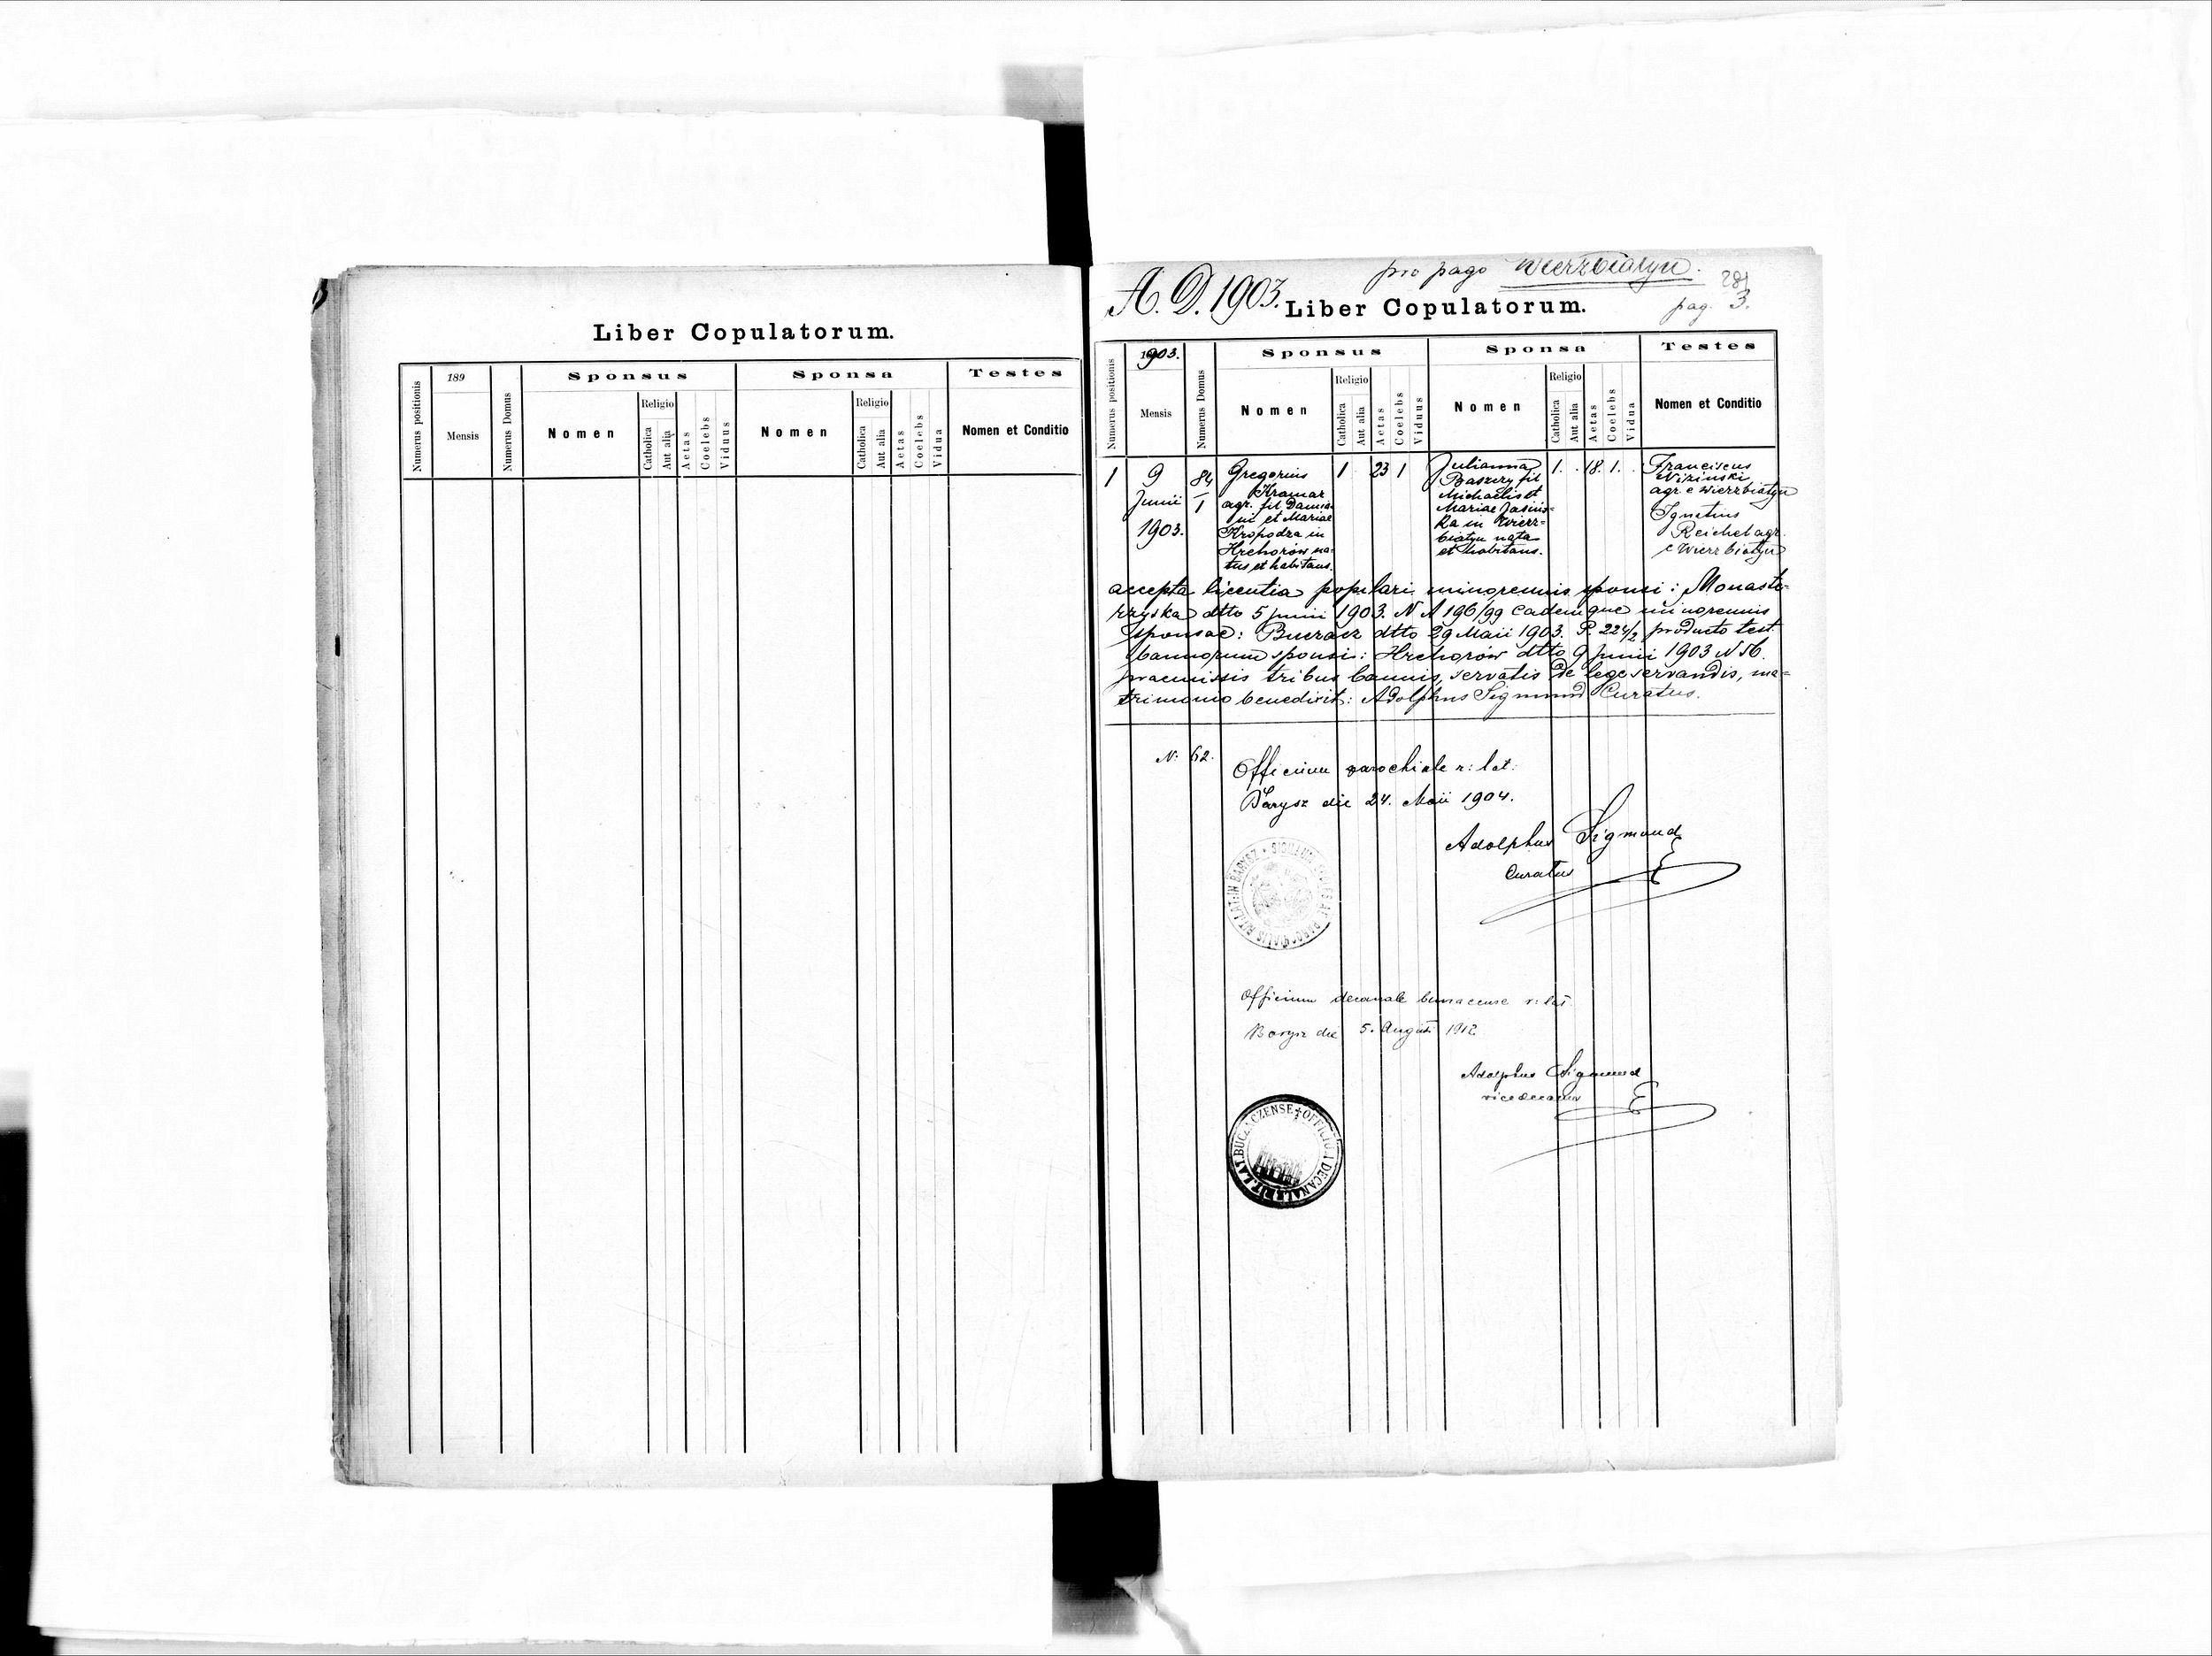 Liber Copulatorum.
Numerus positionis
189
Mensis
Numerus Domus
Sponsus
Nomen
Religio
Catholica
Aut alia
Aetas
Coelebs
Viduus
Sponsa
Nomen
Religio
Catholica
Aut alia
Aetas
Coelebs
Vidua
Testes
Nomen et Conditio
A. D. 1903.
pro pago Wierzbiatyn.
281
Liber Copulatorum.
pag. 3.
Numerus positionis
1903.
Mensis
Numerus Domus
Sponsus
Nomen
Religio
Catholica
Aut alia
Aetas
Coelebs
Viduus
Sponsa
Nomen
Religio
Catholica
Aut alia
Aetas
Coelebs
Vidua
Testes
Nomen et Conditio
1
9
Junii
1903.
84
1
Gregorius
Kramar
agr. fil. Damia-
ni et Mariae
Kropodra in
Hrehorów na-
tus et habitans.
1
23
1
Julianna
Baszczy fil
Michaelis et
Mariae Jasins-
ka in Wierz-
biatyn nata
et habitans.
1.
18.
1.
Franciscus
Nizinski
agr. e Wierzbiatyn
Ignatius
Reichel agr.
e Wierzbiatyn
accepta licentia pupilari minorennis sponsi: Monaste-
rzyska dtto 5 Junii 1903. N A 196/99 eademque minorennis
sponsae: Buczacz dtto 29 Maii 1903. P. 224/2 producto test.
bannorum sponsi: Hrehorów dtto 9 Junii 1903 N 56.
praemissis tribus bannis, servatis de lege servandis, ma-
trimonio benedixit: Adolphus Sigmund Curatus.
N: 62.
Officium parochiale r: lat:
Barysz die 24. Maii 1904.
Adolphus Sigmund
Curatus
Officium decanale buczacense r: lat.
Barysz die 5. Augusti 1912
Adolphus Sigmund
vicedecanus
RIT. LAT. BUCZACZENSE + OFFICIUM DECANALE